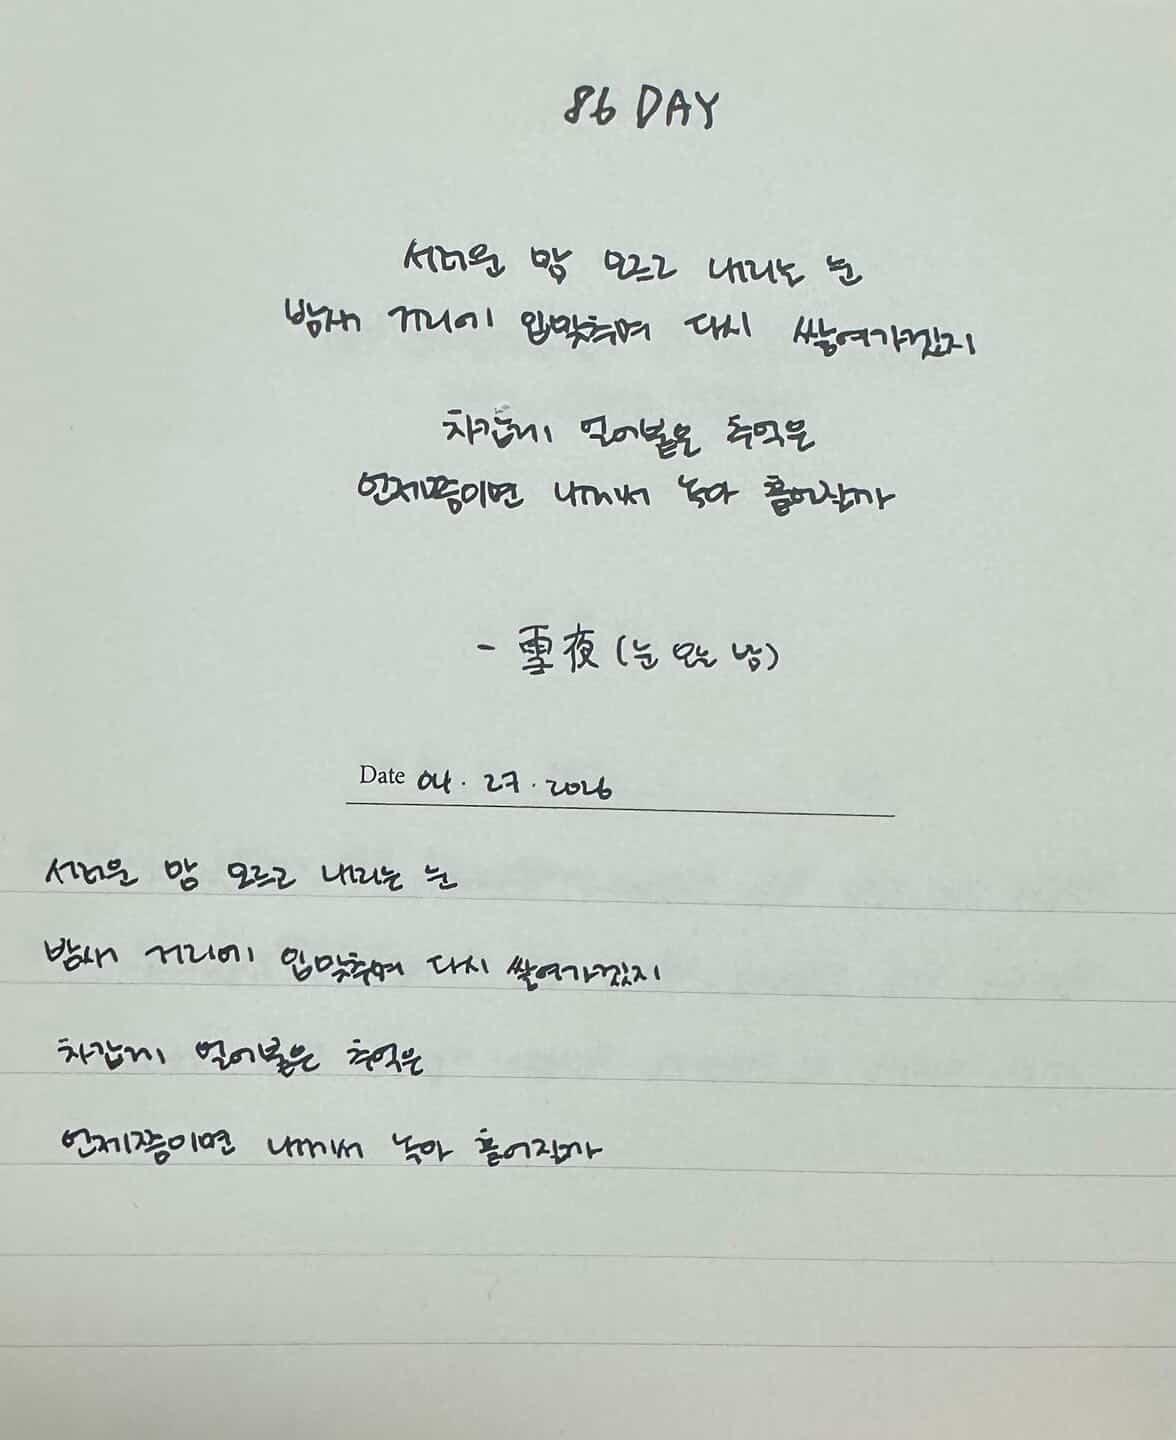 86 DAY
서러운 맘 모르고 내리는 눈
밤새 거리에 입맞추며 다시 쌓여가겠지
차갑게 얼어붙은 추억은
언제쯤이면 내게서 녹아 흩어질까
- 雪夜 (눈 오는 밤)
Date 04.27.2026
서러운 맘 모르고 내리는 눈
밤새 거리에 입맞추며 다시 쌓여가겠지
차갑게 얼어붙은 추억은
언제쯤이면 내게서 녹아 흩어질까